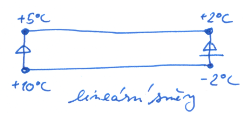 +5°C +2°C
+10°C -2°C
lineární směry